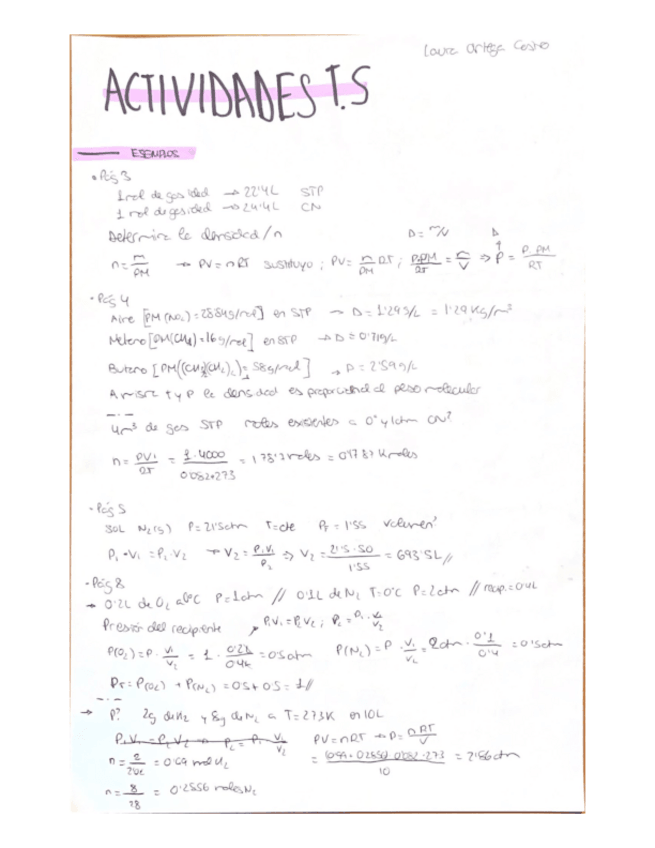 Laura Ortega Castro
ACTIVIDADES T.5
EJEMPLOS
• Pág 3
1 mol de gas ideal → 22'4L STP
1 mol de gas ideal → 24'4L CN
Determina la densidad / n D = m/V D
n = m/PM → PV = nRT sustituyo ; PV = m/PM RT ; P.PM/RT = m/V ⇒ P = P.PM/RT
• Pág 4
Aire [PM = 28'84g/mol] en STP → D = 1'29 g/L = 1'29 Kg/m³
Metano [PM(CH4) = 16 g/mol] en STP → D = 0'71g/L
Butano = 58g/mol] → D = 2'59 g/L
A misma t y P la densidad es proporcional al peso molecular
4m³ de gas STP moles existentes a 0° y 1atm CN?
n = PV/RT = 1·4000/0'082·273 = 178'7 moles = 0'1787 Kmoles
• Pág 5
50L N2(g) P = 21'5atm T=cte Pf = 1'55 Volumen?
P1·V1 = P2·V2 → V2 = P1V1/P2 ⇒ V2 = 21'5·50/1'55 = 693'5L //
• Pág 8
→ 0'2L de O2 a 0°C P=1atm // 0'1L de N2 T=0°C P=2atm // recip.=0'4L
Presión del recipiente P1V1 = P2V2 ; P2 = P1·V1/V2
P(O2) = P · V1/V2 = 1 · 0'2L/0'4L = 0'5atm P(N2) = P · V1/V2 = 2atm · 0'1/0'4 = 0'5atm
PT = P(O2) + P(N2) = 0'5 + 0'5 = 1 //
→ P? 2g de H2 y 8g de N2 a T = 273K en 10L
P1V1 = P2V2 → P2 = P1 V1/V2 PV = nRT → P = nRT/V
n = 2/ = mol H2 = 0'082·273/10 = 2'86 atm
n = 8/28 = 0'2856 moles N2